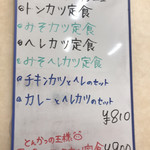 ●トンカツ定食
●みそカツ定食
●ヘレカツ定食
●みそヘレカツ定食
●チキンカツとヘレのセット
●カレーとヘレカツのセット
¥810
とんかつの王様
定食
¥900